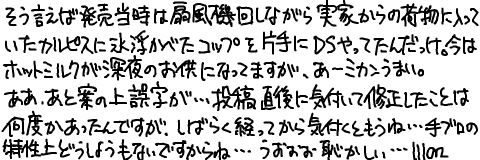 そう言えば発売当時は扇風機回しながら実家からの荷物に入って
いたカルピスに氷浮かべたコップを片手にDSやってたんだっけ。今は
ホットミルクが深夜のお供になってますが、あーミカンうまい。
ああ、あと案の上誤字が…投稿直後に気付いて修正したことは
何度かあったんですが、しばらく経ってから気付くともうね…手ブロの
特性上どうしようもないですからね…うおおお恥かしい…